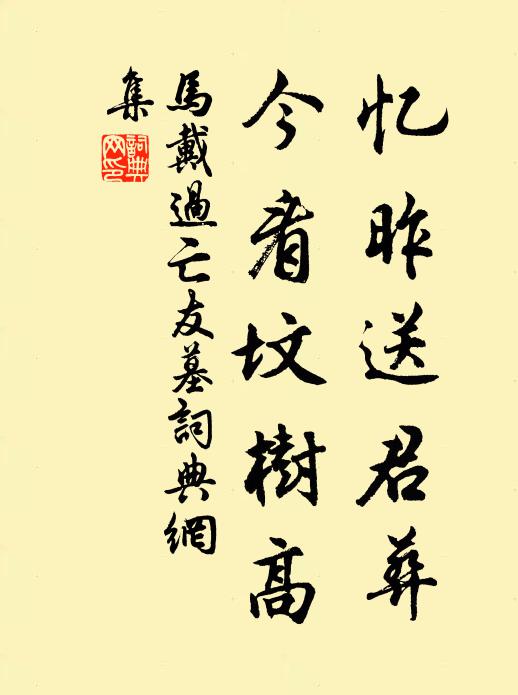 忆昨送君葬
今看坟樹高
馬戴過亡友墓詞典網
集
詞典
网印